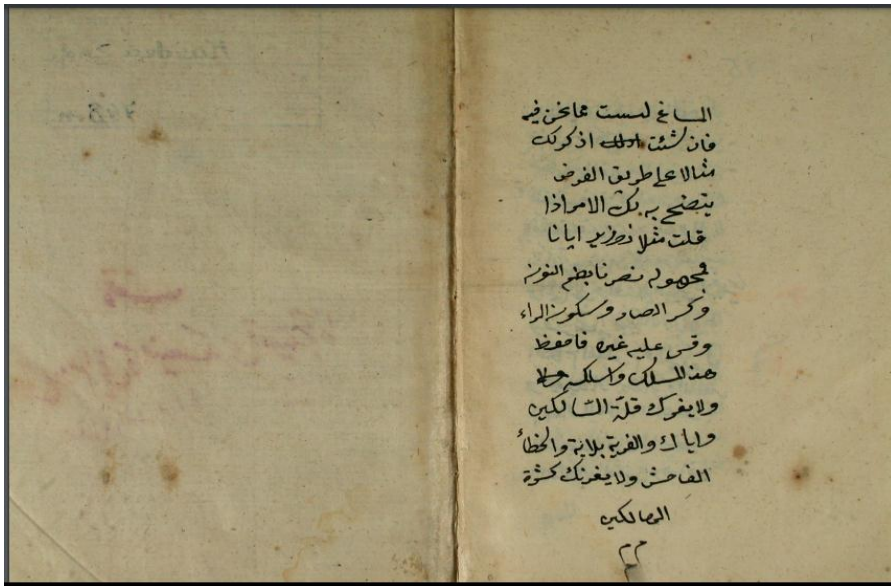 المانع ليست مما نحن فيه
فان شئت اذكر لك
مثالا على طريق الفرض
يتضح به لك الامر اذا
قلت مثلا نصر زيد ايانا
فمجهوله نصرنا بضم النون
وكسر الصاد وسكون الراء
وقس عليه غيره فاحفظ
هذا المسلك واسلكه
ولا يغرك قلة السالكين
واياك والفرية بلاية والخطأ
الفاحش ولا يغرنك كثرة
الهالكين